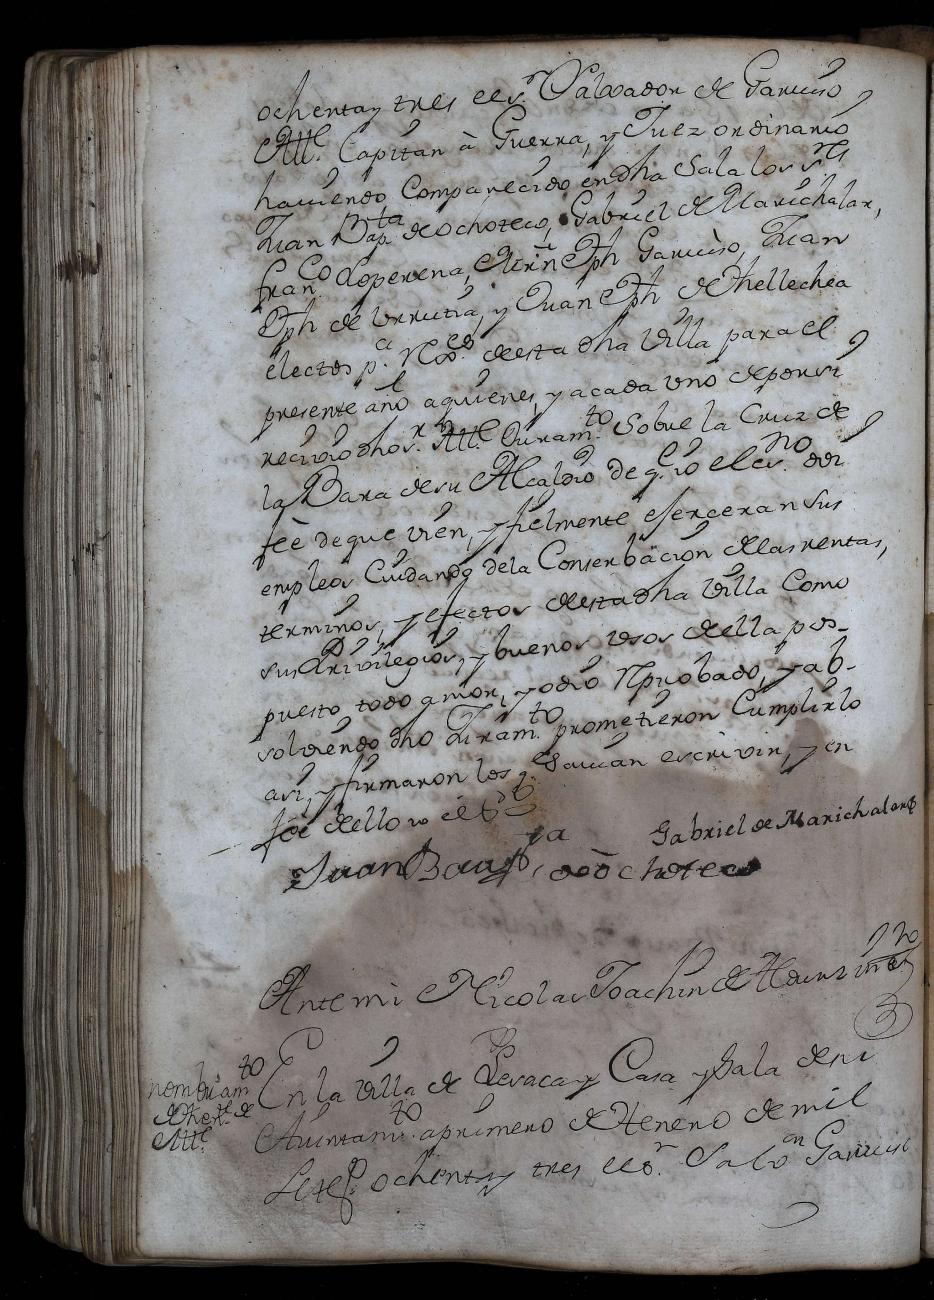 ochentay tres el s.r Salvador de Garmiso
Alle. Capitan à Guerra, y Juez ordinario
haviendo Comparecido en dha Sala los s.res
Juan Bap.ta de ochoteco, Gabriel de Marichalar,
fran.co Loperena, Mrñ Jph Garciso, Juan
Jph de Urrutia, y Juan Jph de Thellechea
electos p.a de esta dha Villa para el
presente año aquienes, y acada uno de por si
recivio dho s.r Alle Juram.to Sobre la Cruz de
la Bara de su Alcaldio de q.e yo el es.no doi
feè de que vien, y fielmente eferceran sus
empleos Cuidando dela Conserbacion de las rentas,
terminos, y efectos de esta dha Villa Como
sus Privilegios, y buenos usos de ella pos-
puesto todo amor, y odio Reprobado, y ab-
solviendo dho Juram.to prometieron Cumplirlo
asi, y firmaron los q. Savian escrivir, y en
feè de ello yo el
Juan Baup.ta de ochoteco
Gabriel de Marichalar
Ante mi Nicolas Joachin de
nombram.to
de Then.te de
Alle.
En la Villa de Lesaca y Casa y Sala de su
Aiuntam.to aprimero de Henero de mil
Setez. ochentay tres el s.r Salv.or